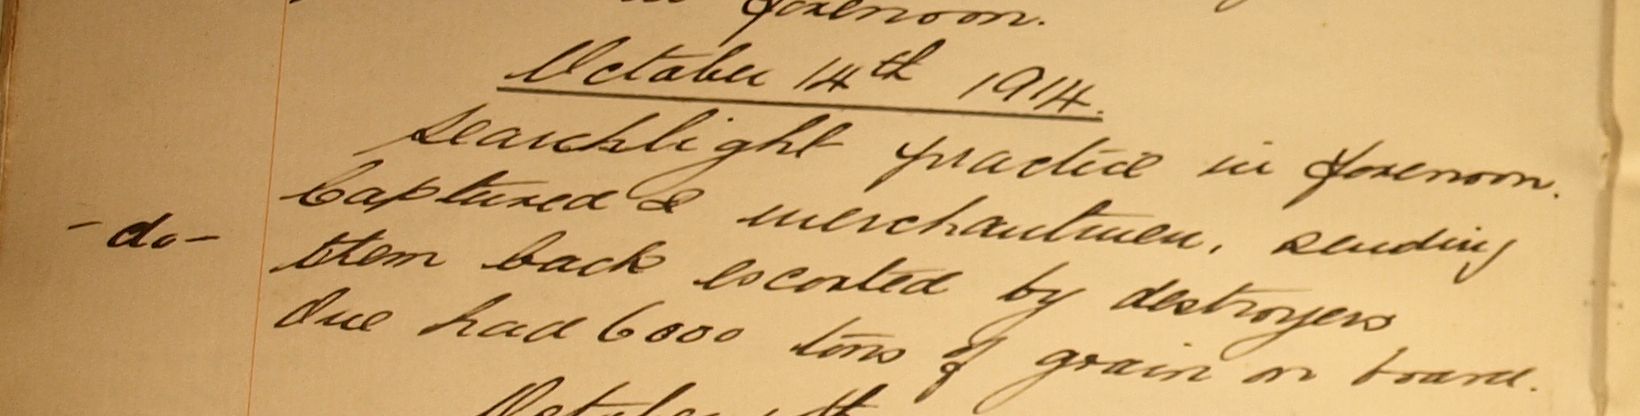 in forenoon.
October 14th 1914.
Searchlight practice in forenoon.
Captured 2 merchantmen, sending
- do - them back escorted by destroyers
One had 6000 tons of grain on board.
October th